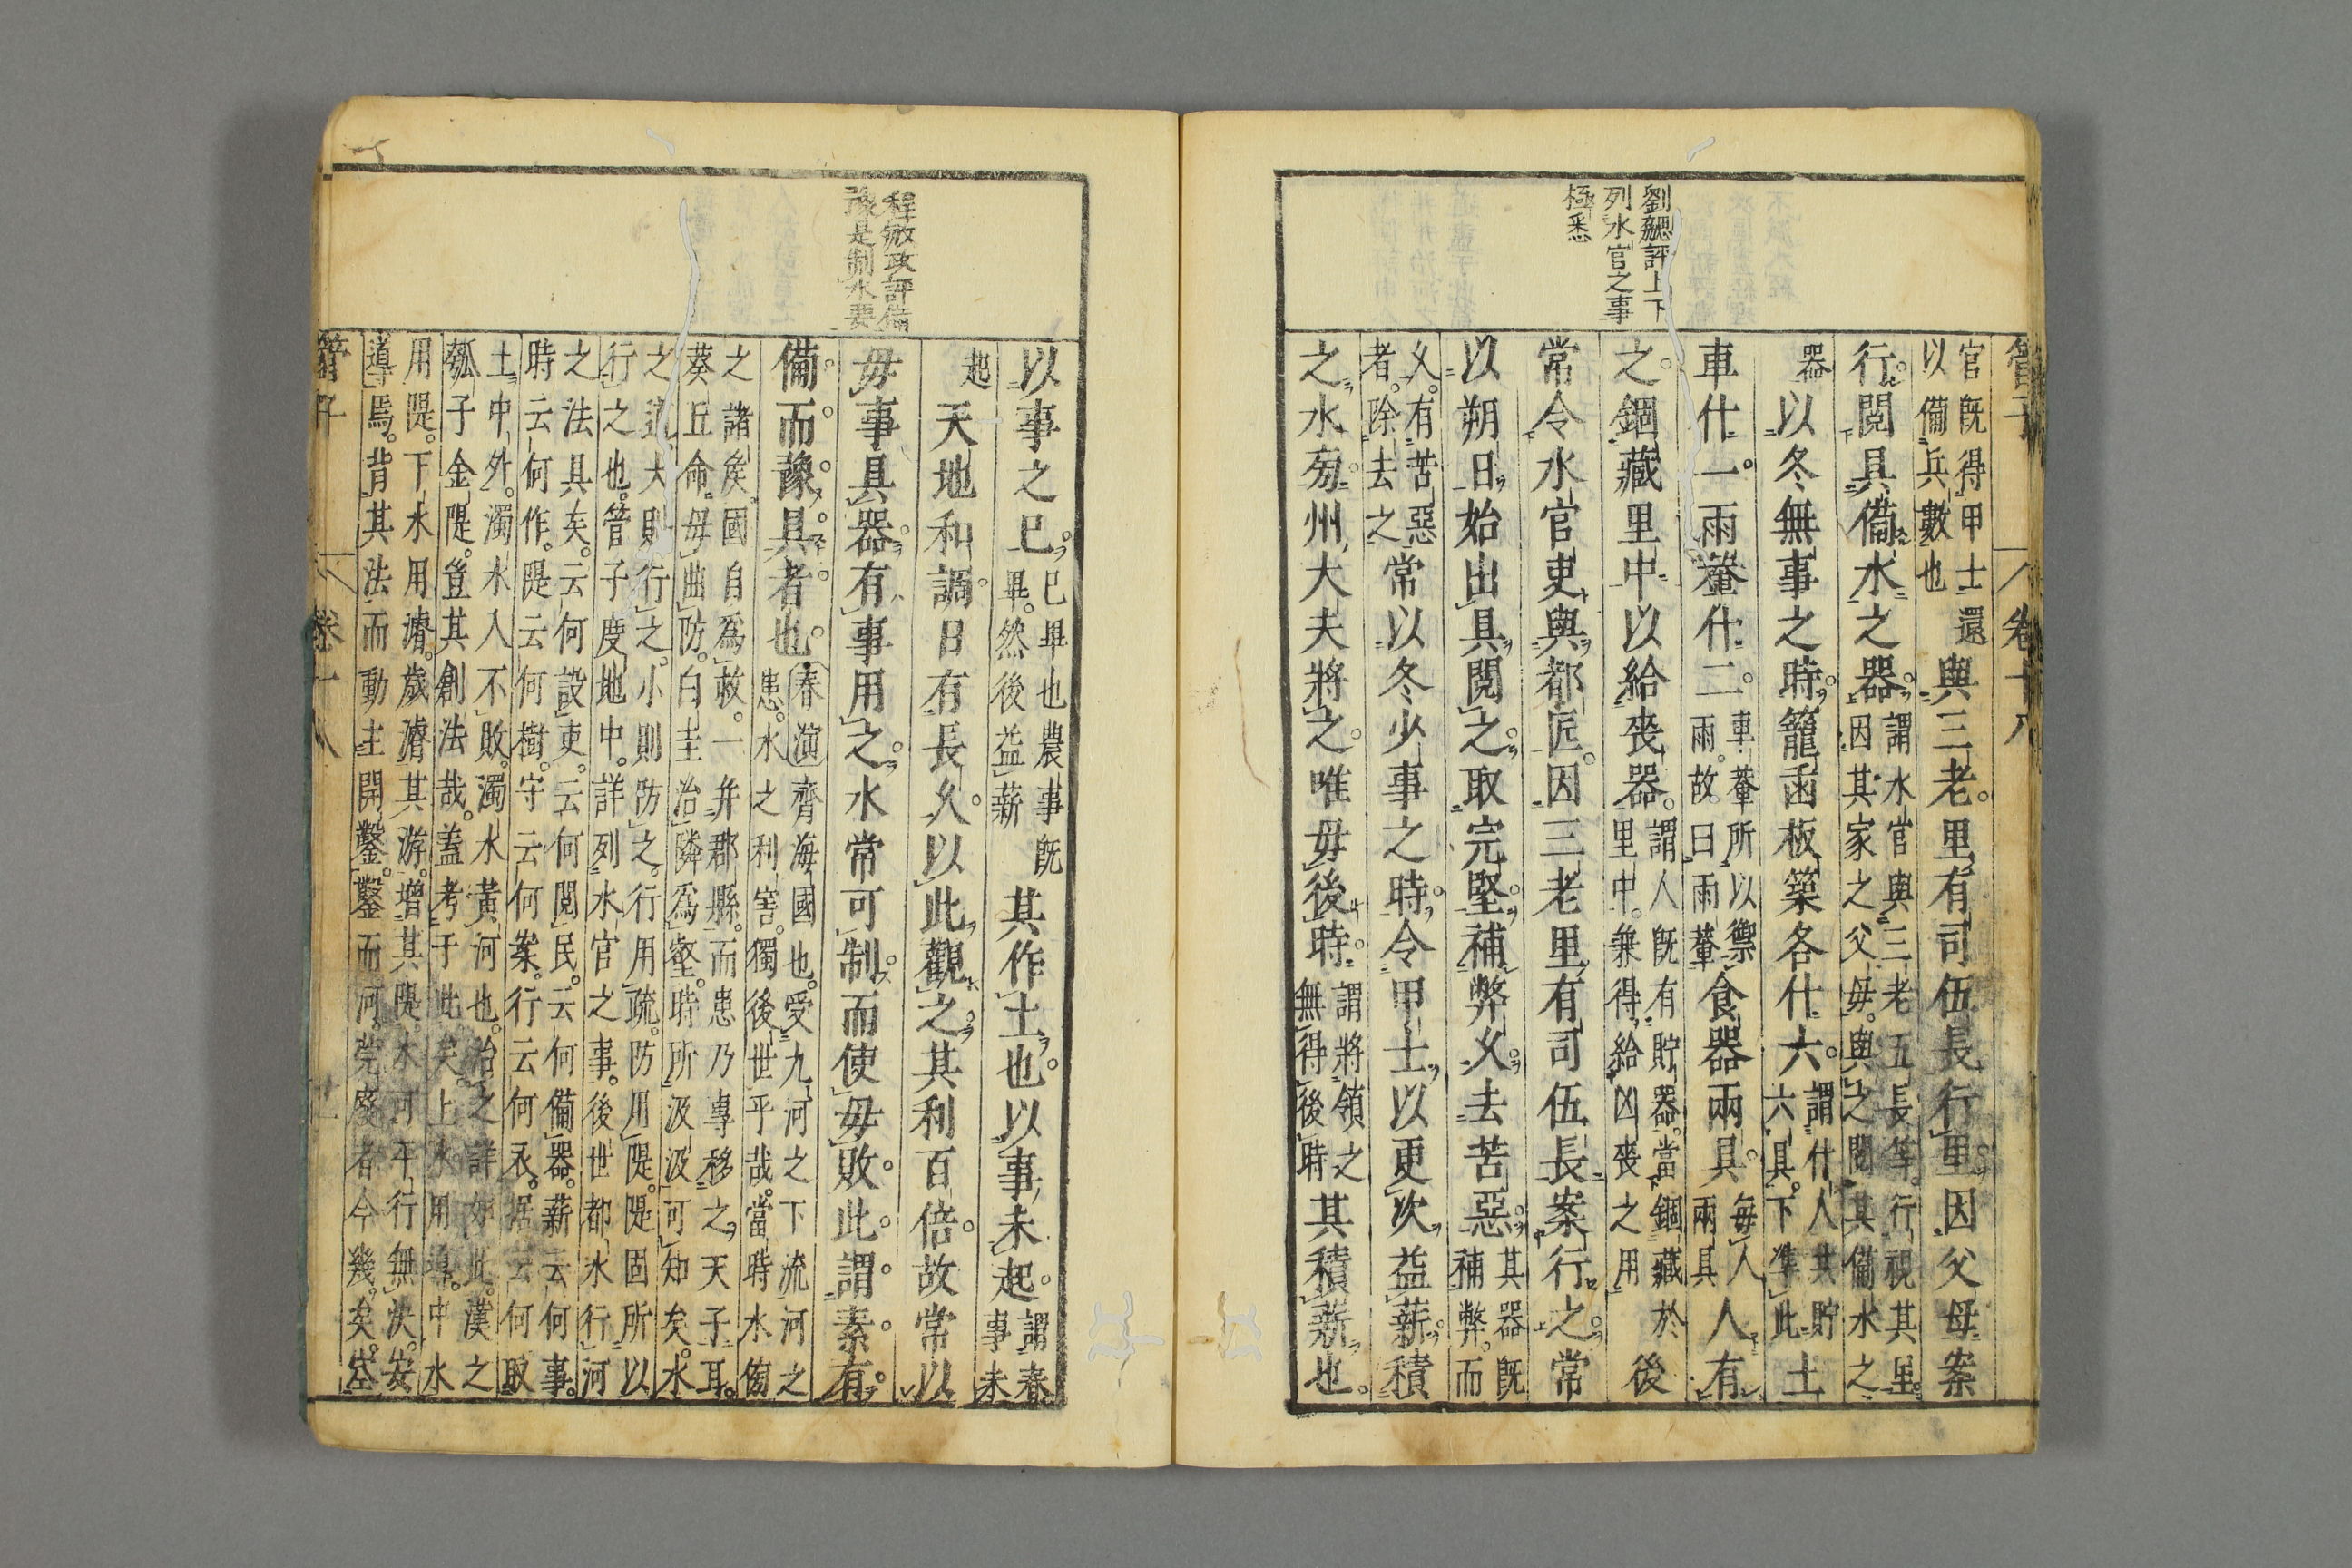 管子
卷十八
劉勰評上下
列水官之事
極悉
官既得甲士還
以備兵數也
與三老里有司伍長行里因父母案
行閱具備水之器
謂水官與三老五長等行視其里
因其家之父母與之閱其備水之
器
以冬無事之時籠臿板築各什六
謂什人其貯
六具下準此
土
車什一雨䡝什二
車䡝所以禦
雨故曰雨䡝
食器兩具
每人
兩具
人有
之錮藏里中以給喪器
謂人既有貯器當錮藏於
里中兼得給凶喪之用
後
常令水官吏與都匠因三老里有司伍長案行之常
以朔日始出具閱之取完堅補弊久去苦惡
其器既
補弊而
久有苦惡
者除去之
常以冬少事之時令甲士以更次益薪積
之水旁州大夫將之唯毋後時
謂將領之
無得後時
其積薪也
以事之已
已畢也農事既
畢然後益薪
其作土也以事未起
謂春
事未
起
天地和調日有長久以此觀之其利百倍故常以
毋事具器有事用之水常可制而使毋敗此謂素有
程敏政評備
豫是制水要
備而豫具者也
春演齊海國也受九河之下流河之
患水之利害獨後世乎哉當時水偹
之諸矦國自爲故一并郡縣而患乃專移之天子耳
葵丘命毋曲防白圭治隣爲壑時所汲汲可知矣水
之道大則行之小則防之行用疏防用隄隄固所以
行之也管子度地中詳列水官之事後世都水行河
之法具矣云何設吏云何閱民云何備器薪云何事
時云何作隄云何樹守云何案行云何衣据云何取
土中外濁水入不敗濁水黃河也治之詳如此漢之
瓠子金隄豈其創法哉蓋考于此矣上水用導中水
用隄下水用濬歲濬其游增其隄水可平行無決安
導焉背其法而動主開鑿鑿而河莞廢者今幾矣
管子
卷十八